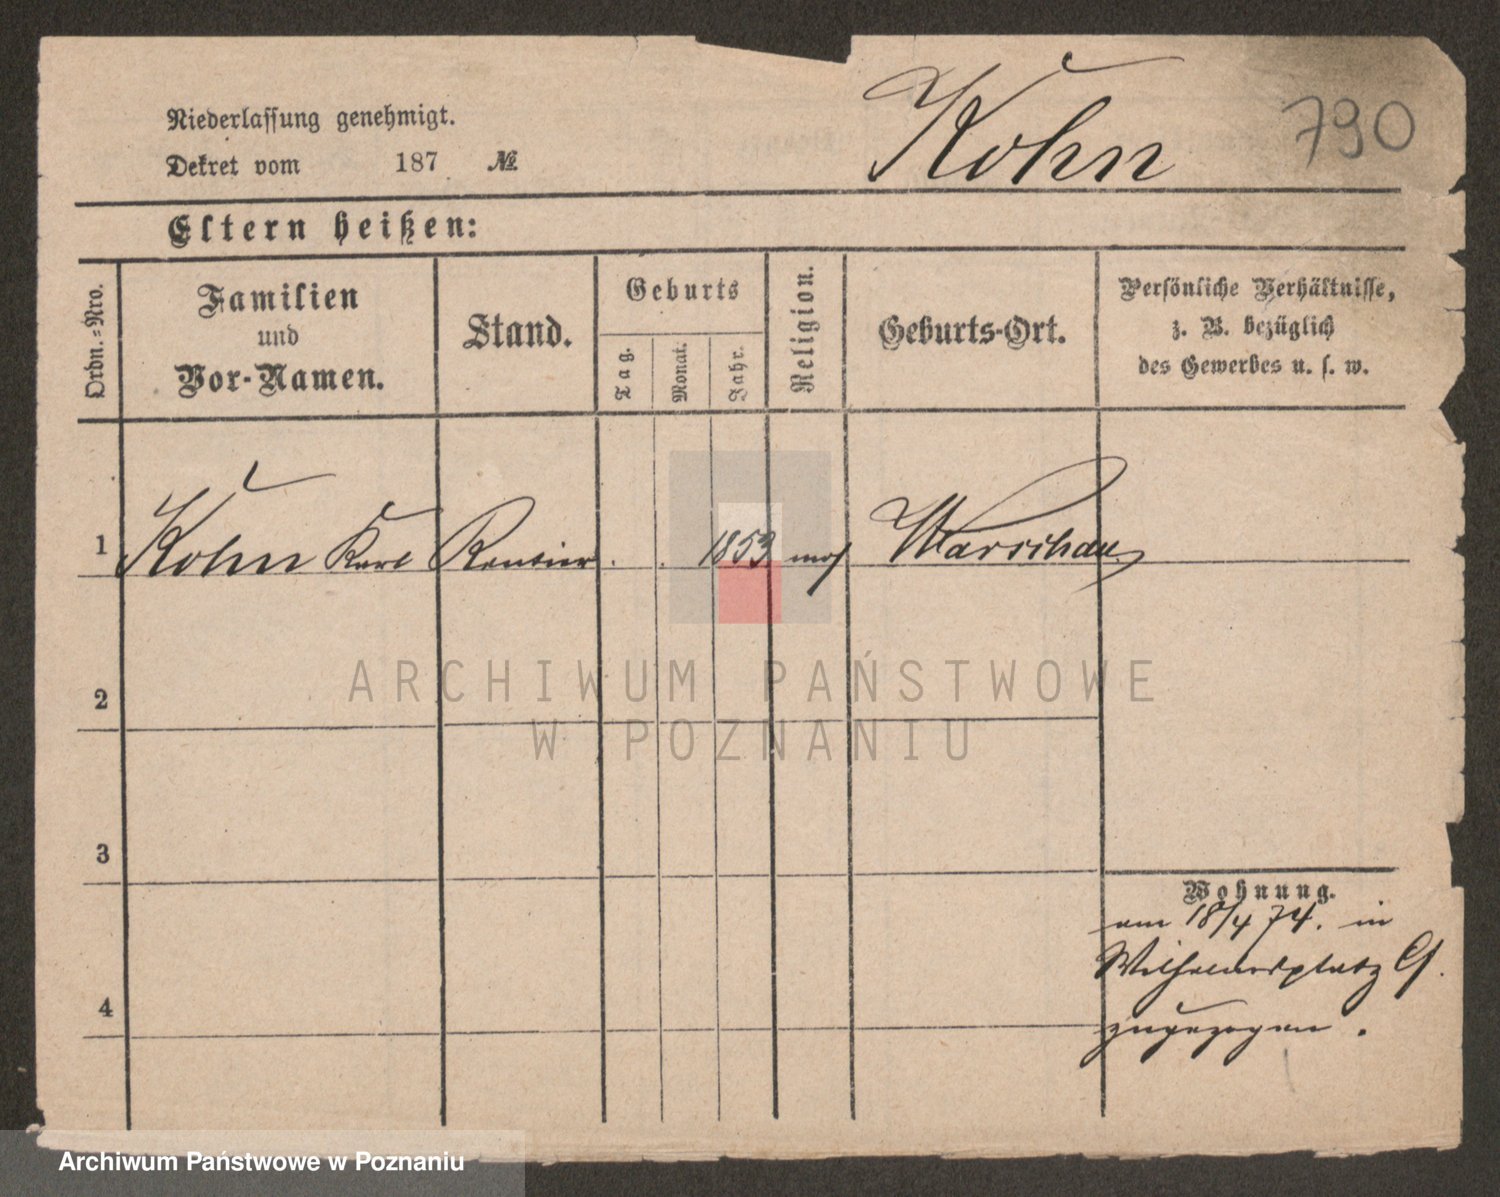 Kohn
790
Niederlassung genehmigt.
Dekret vom 187 №
Eltern heißen:
Ordn.-Nro.
Familien
und
Vor-Namen.
Stand.
Geburts
Tag.
Monat.
Jahr.
Religion.
Geburts-Ort.
Persönliche Verhältnisse,
z. B. bezüglich
des Gewerbes u. s. w.
1 Kohn Karl Rentier . . 1853 mos Warschau
2
ARCHIWUM PAŃSTWOWE
W POZNANIU
3
Wohnung.
am 18/4 74. in
Wilhelmsplatz
4
zugezogen.
Archiwum Państwowe w Poznaniu